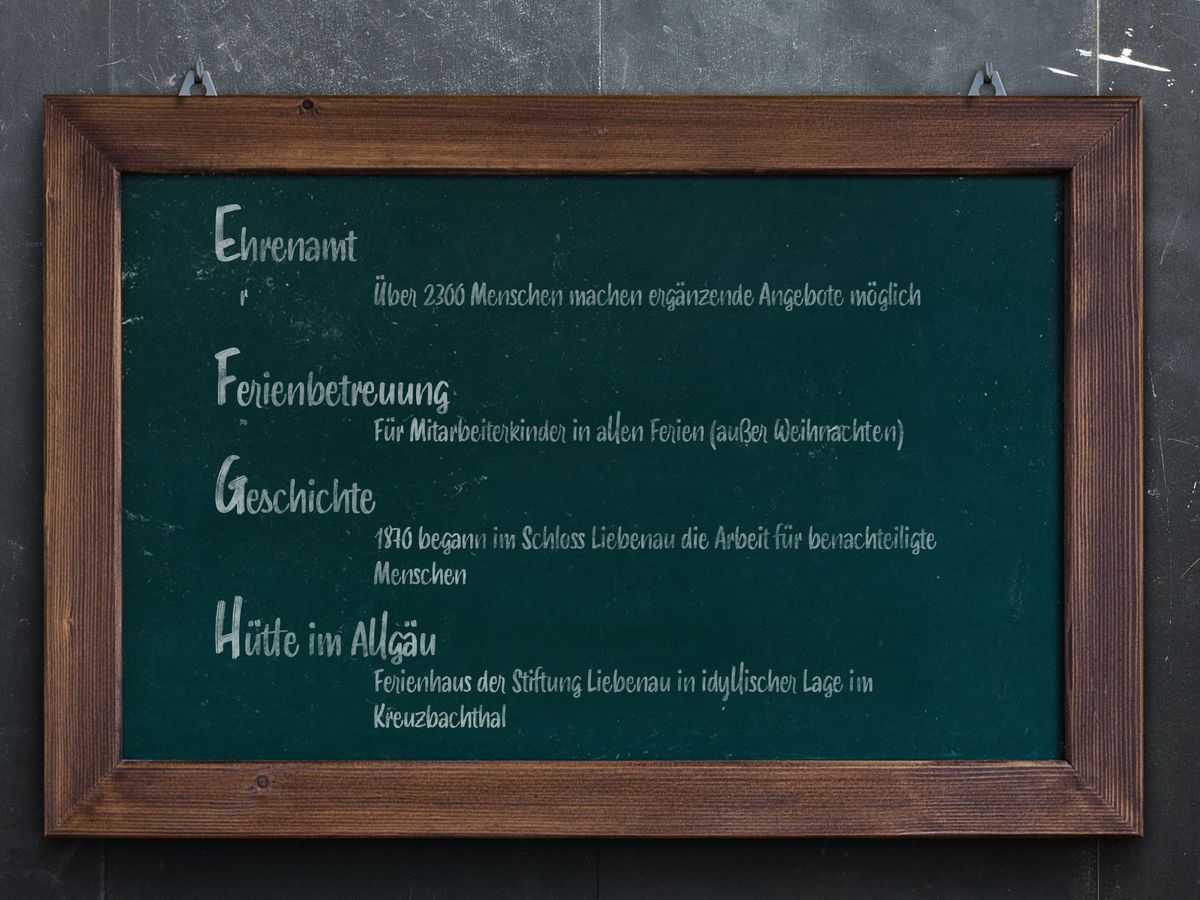 Ehrenamt
r
Über 2300 Menschen machen ergänzende Angebote möglich
Ferienbetreuung
Für Mitarbeiterkinder in allen Ferien (außer Weihnachten)
Geschichte
1870 begann im Schloss Liebenau die Arbeit für benachteiligte
Menschen
Hütte im Allgäu
Ferienhaus der Stiftung Liebenau in idyllischer Lage im
Kreuzbachthal